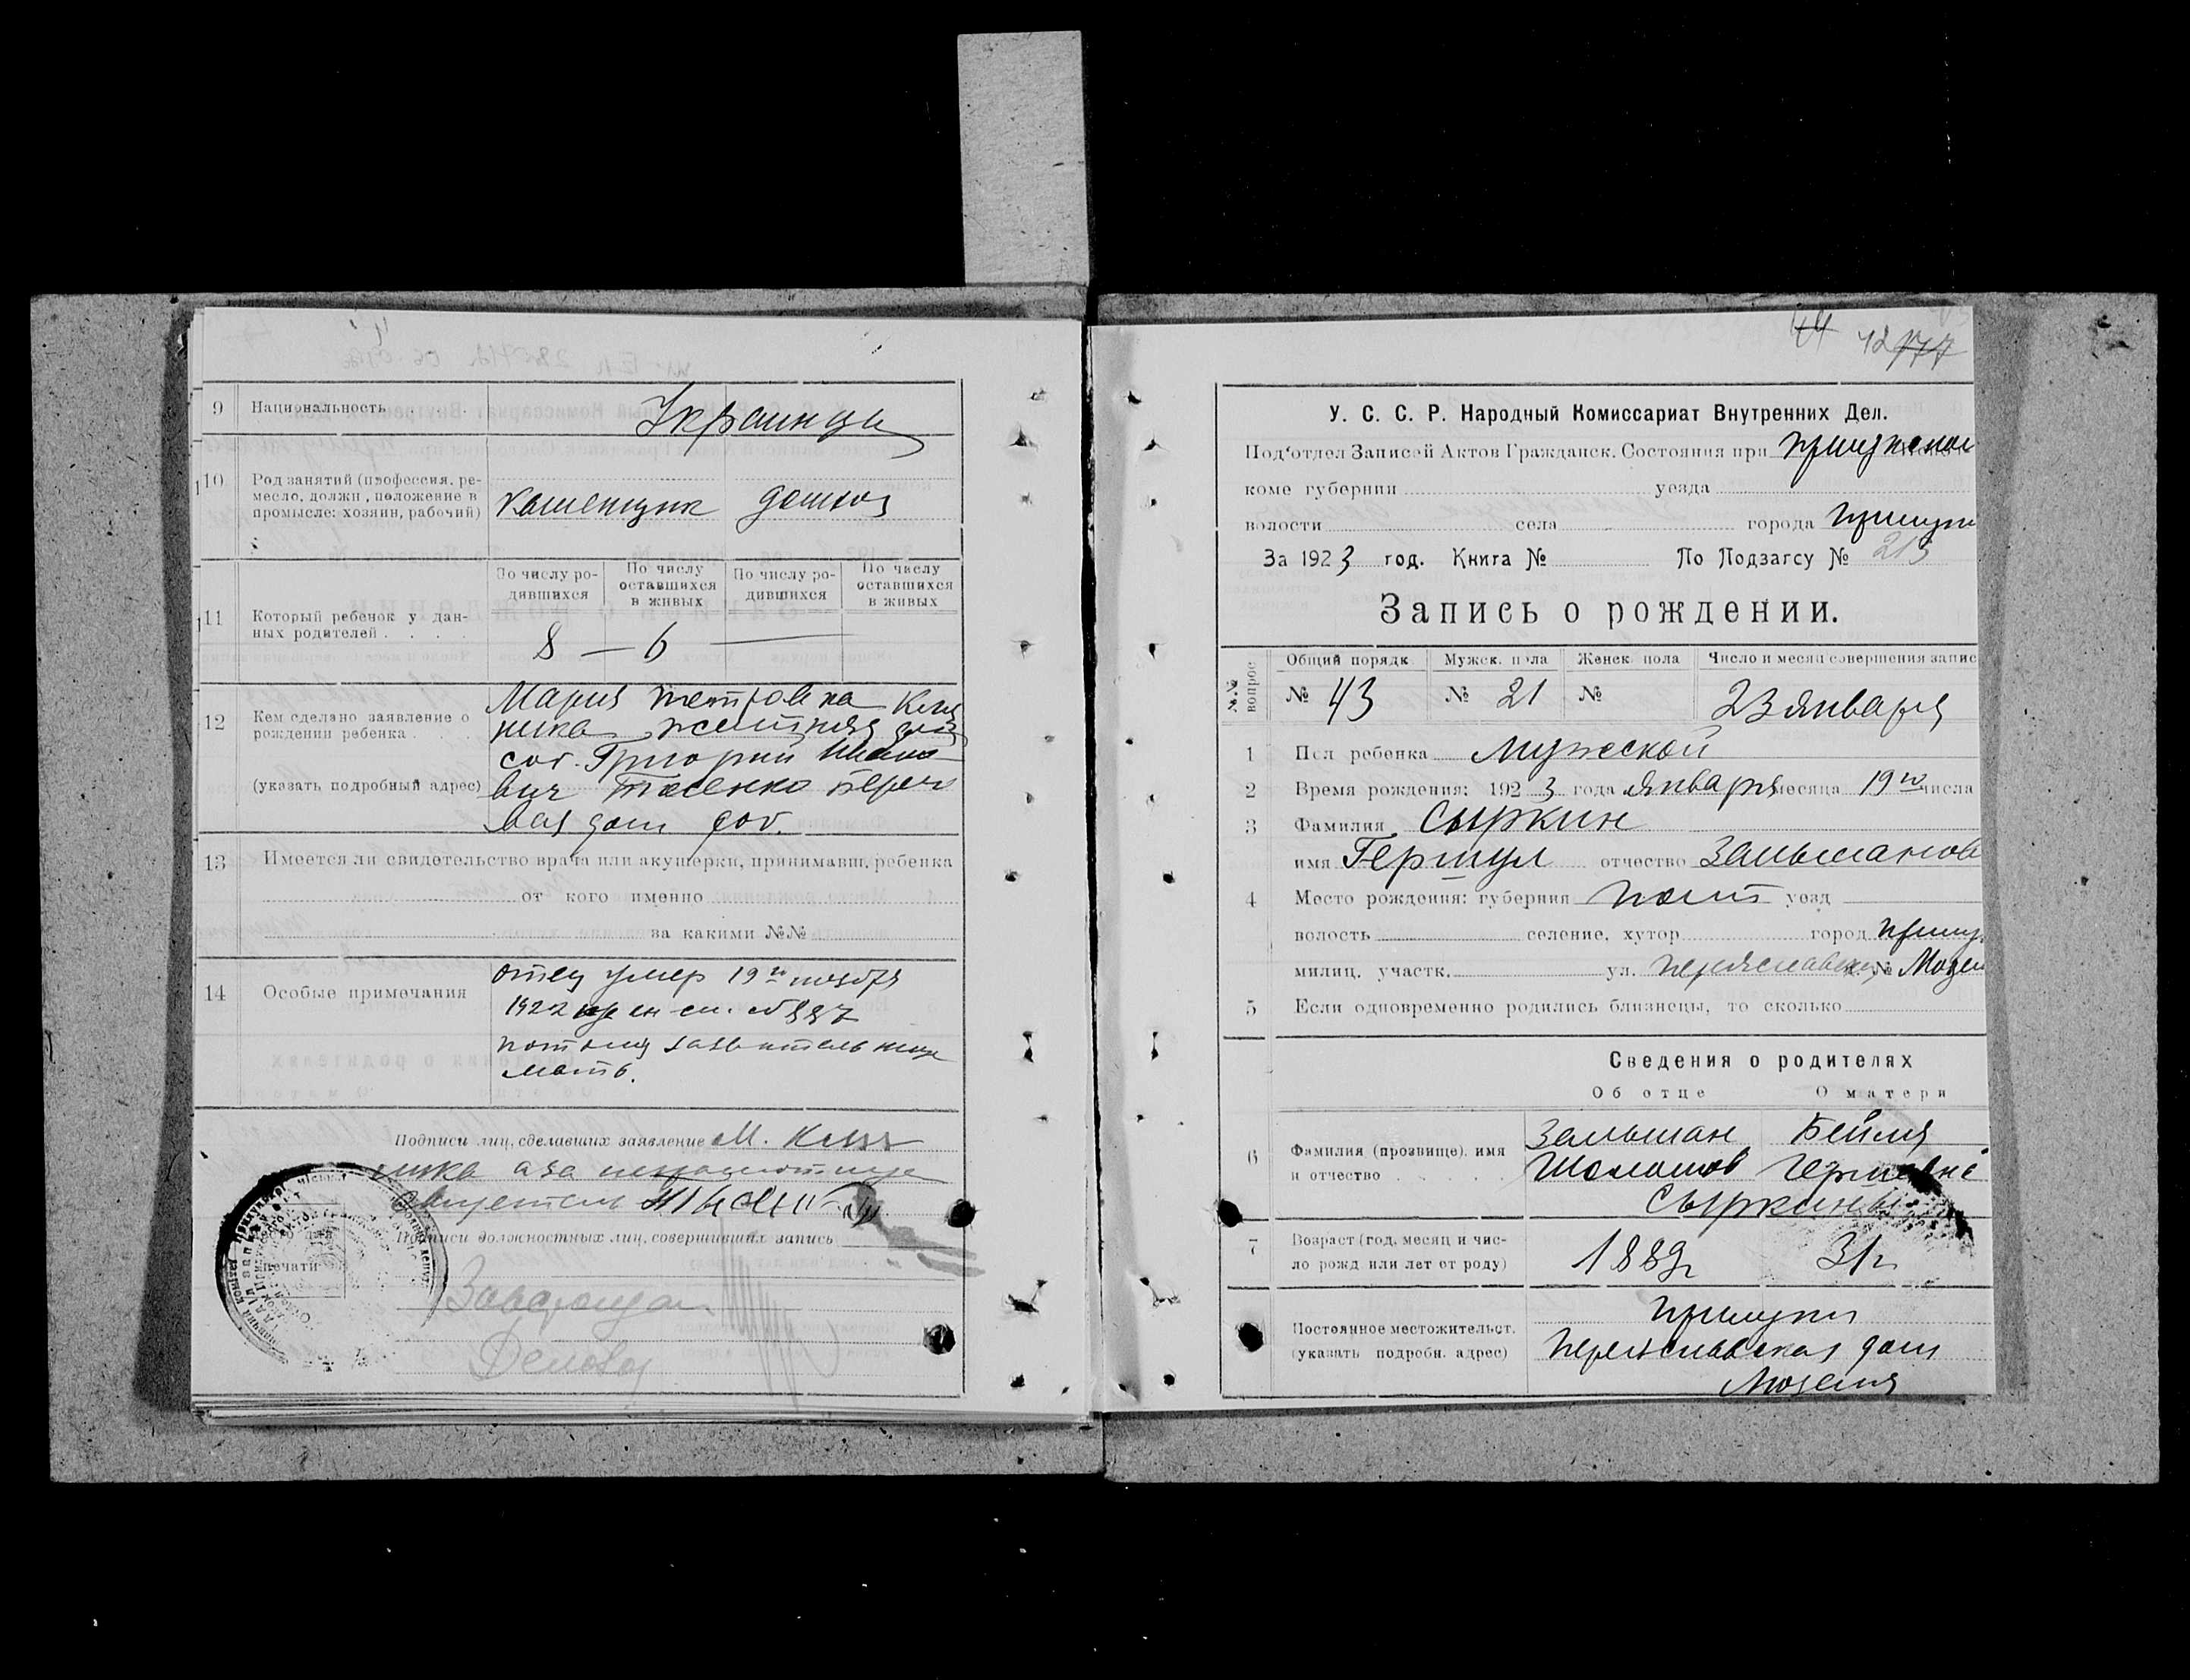 9 Национальность . . . . Украинцы
10 Род занятий (профессия, ре-
месло, должн , положение в
промысле: хозяин, рабочий)
Каменщик домохоз
11 Который ребенок у дан-
ных родителей . . . .
По числу ро-
дившихся
По числу
оставшихся
в живых
По числу ро-
дившихся
По числу
оставшихся
в живых
8 — 6
12 Кем сделано заявление о
рождении ребенка . . .
(указать подробный адрес)
Мария Петровна
Григорий Ивано
вич Тасенко
вая дом
13 Имеется ли свидетельство врача или акушерки, принимавш. ребенка
от кого именно
за какими №№
14 Особые примечания
отец умер 19го ноября
1922
потому заявительница
мать.
Подписи лиц, сделавших заявление М.
а за неграмотную
Подписи должностных лиц, совершивших запись
печати
Заведующая
Деловод
44 42 177
У. С. С. Р. Народный Комиссариат Внутренних Дел.
Под‘отдел Записей Актов Гражданск. Состояния при Прилукском
коме губернии уезда
волости села города Прилуки
За 1923 год. Книга № По Подзагсу № 213
Запись о рождении.
№№ вопрос
Общий порядк Мужск. пола Женск. пола Число и месяц совершения запис
№ 43 № 21 № 23 января
1 Пол ребенка Мужской
2 Время рождения: 1923 года января месяца 19го числа
3 Фамилия Сыркин
имя Гершул отчество Залманов
4 Место рождения: губерния Полт уезд
волость селение, хутор город Прилу
милиц. участк. ул. Переяславск. № Мозел
5 Если одновременно родились близнецы, то сколько
Сведения о родителях
Об отце О матери
6 Фамилия (прозвище), имя
и отчество . . . . .
Залман Бейля
Шоломов
Сыркины
7 Возраст (год, месяц и чис-
ло рожд или лет от роду)
1889г 31г
Постоянное местожительст.
(указать подробн. адрес)
Прилуки
Переяславская дом
Мозеля